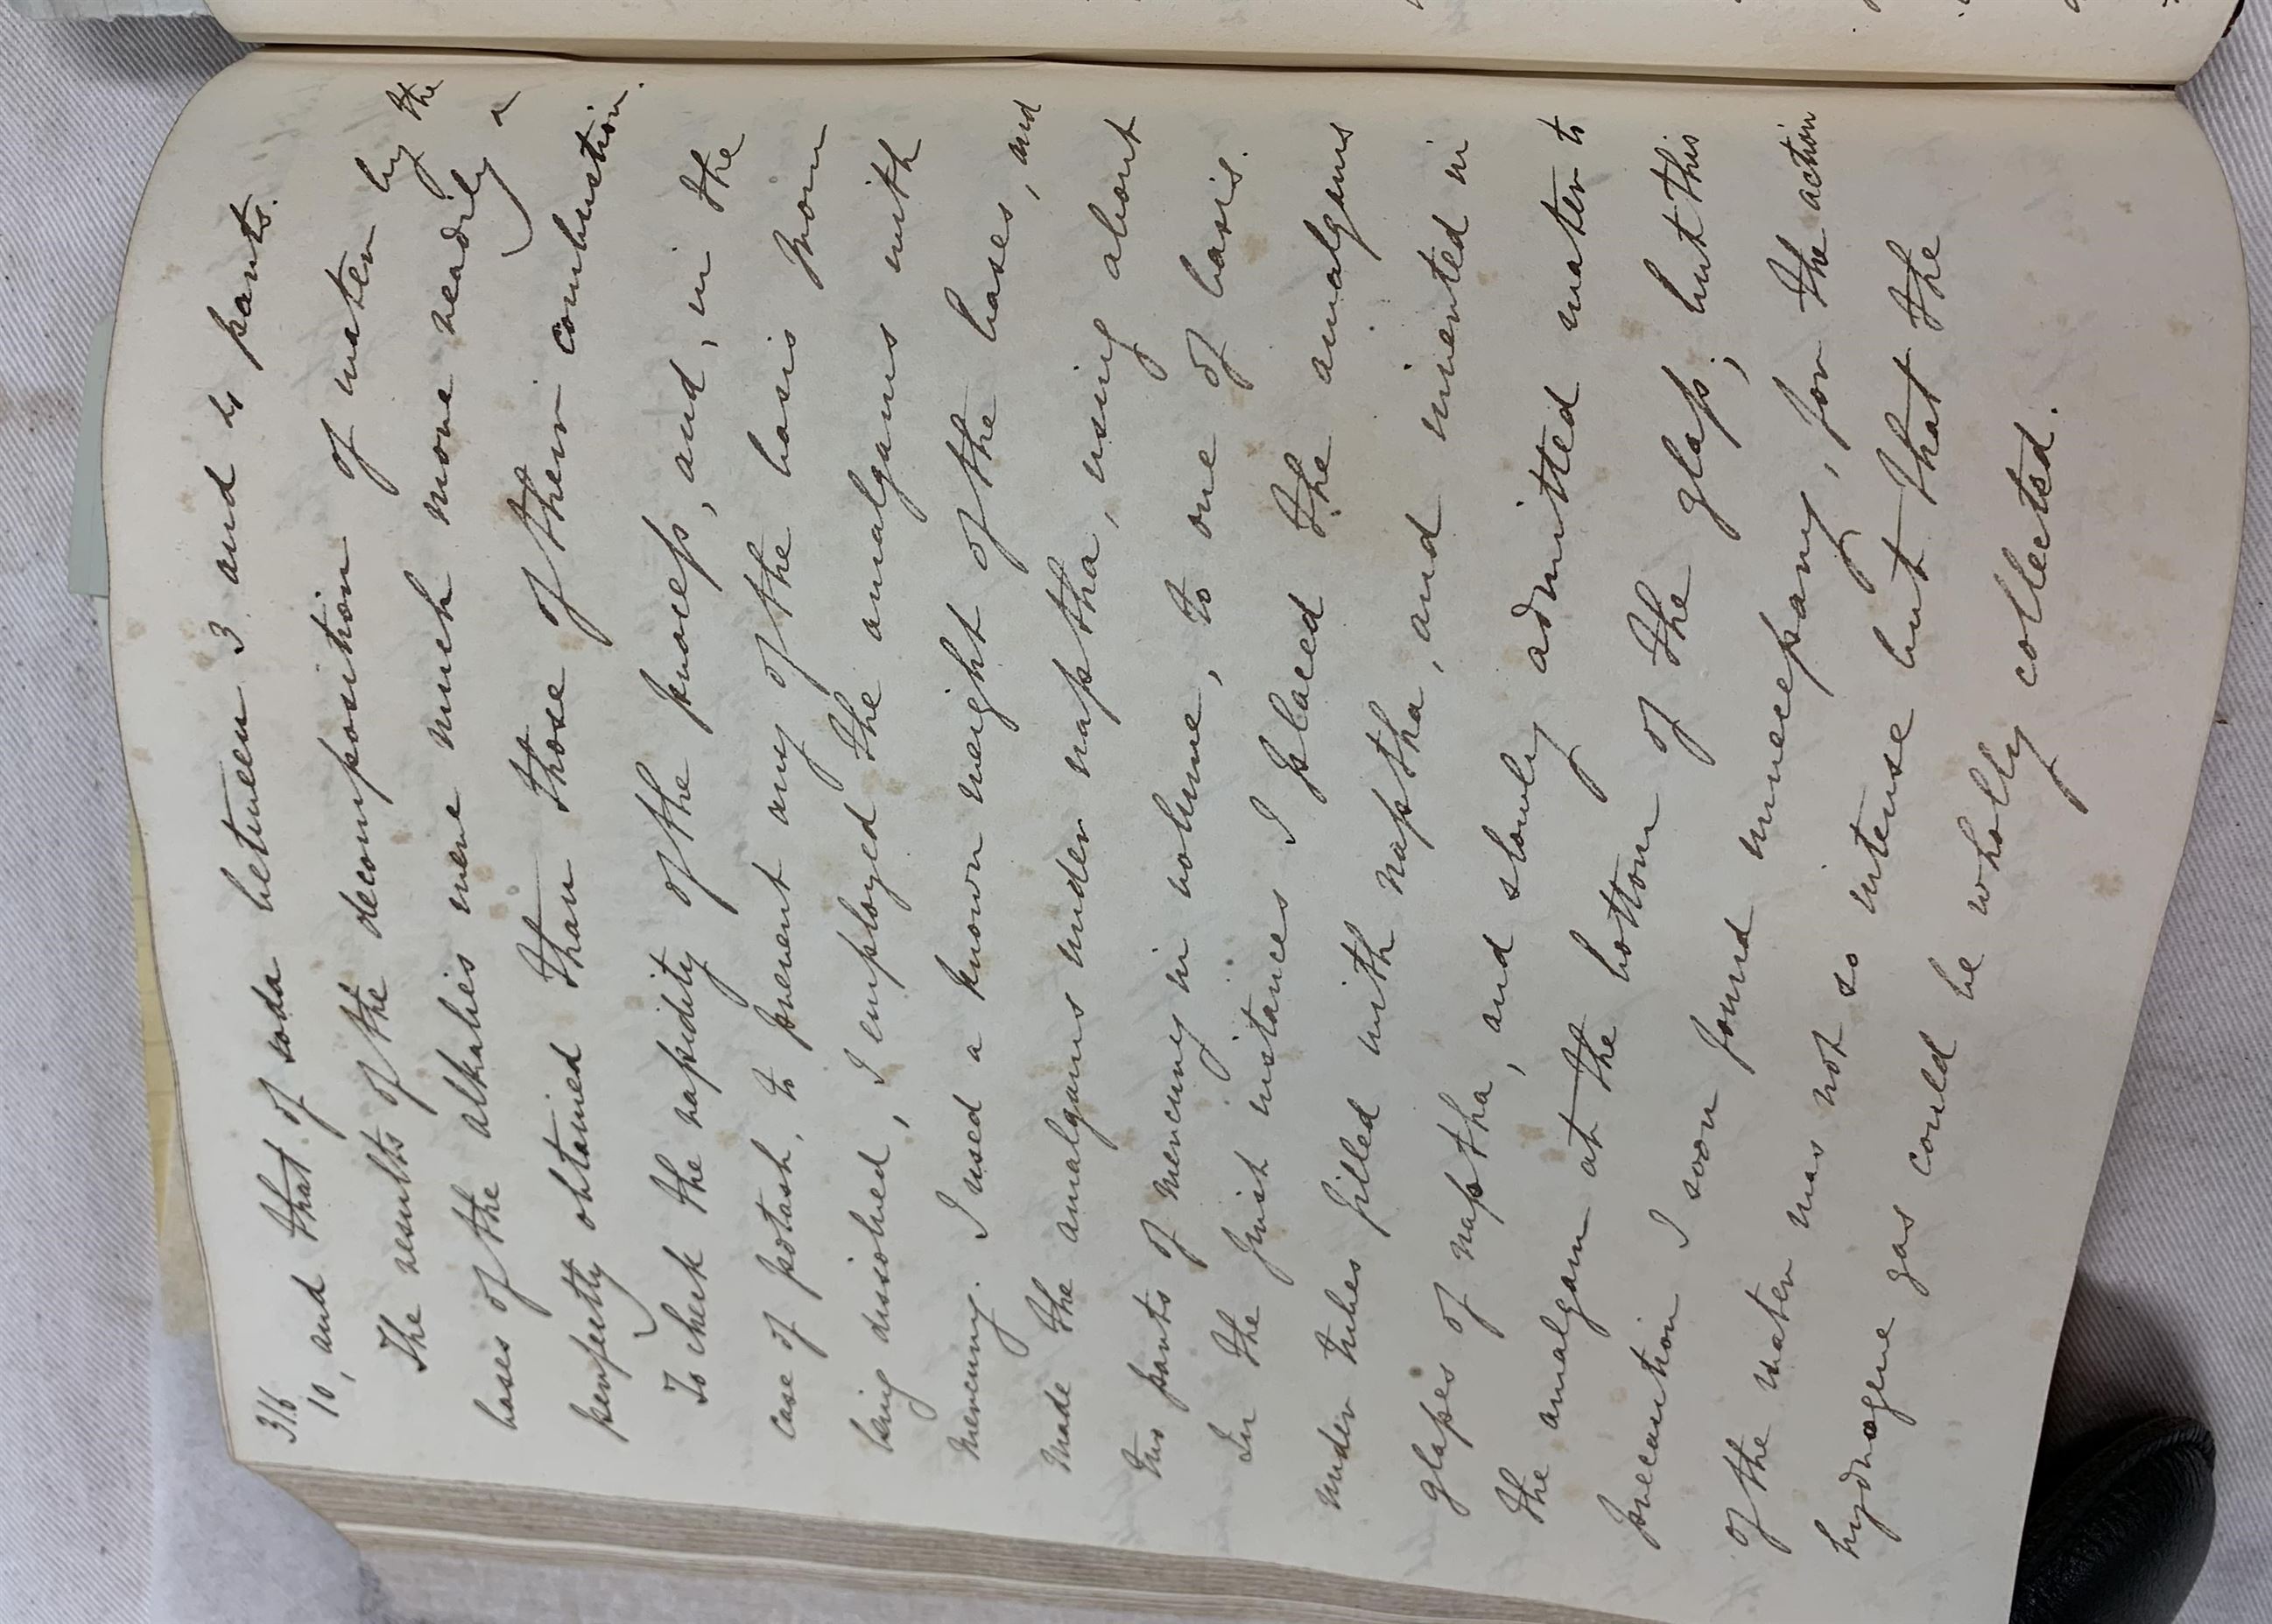 316
10, and that of soda between 3 and 4 parts.
The results of the decomposition of water by the
bases of the alkalies were much more readily &
perfectly obtained than those of their combustion.
To check the rapidity of the process, and, in the
case of potash, to prevent any of the basis from
being dissolved, I employed the amalgams with
mercury. I used a known weight of the bases, and
made the amalgams under naptha, using about
two parts of mercury in volume, to one of basis.
In the first instances I placed the amalgams
under tubes filled with naptha, and inverted in
glasses of naptha, and slowly admitted water to
the amalgam at the bottom of the glass; but this
precaution I soon found unnecessary, for the action
of the water was not so intense but that the
hydrogene gas could be wholly collected.